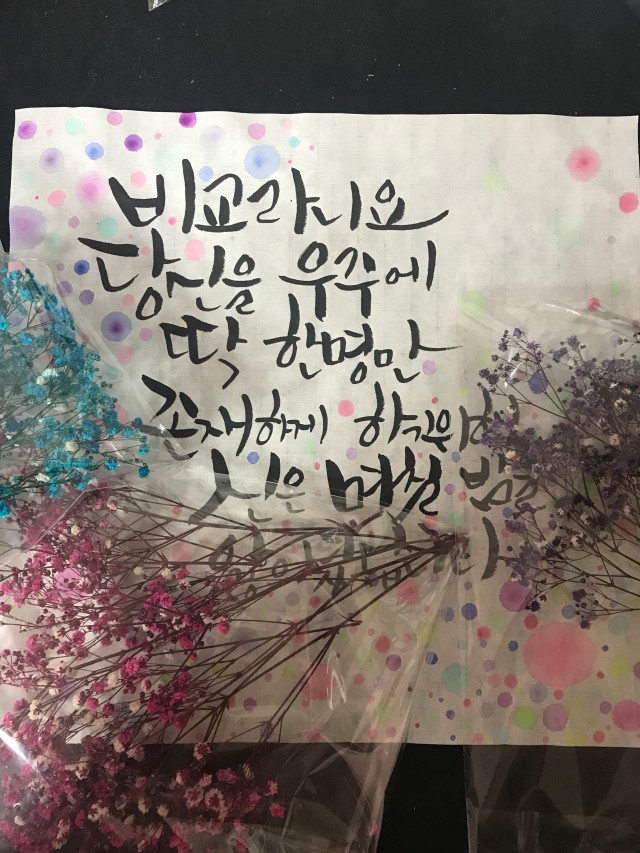 비교라니요
당신을 우주에
딱 한명만
존재하게 하기위해
신은 며칠 밤을